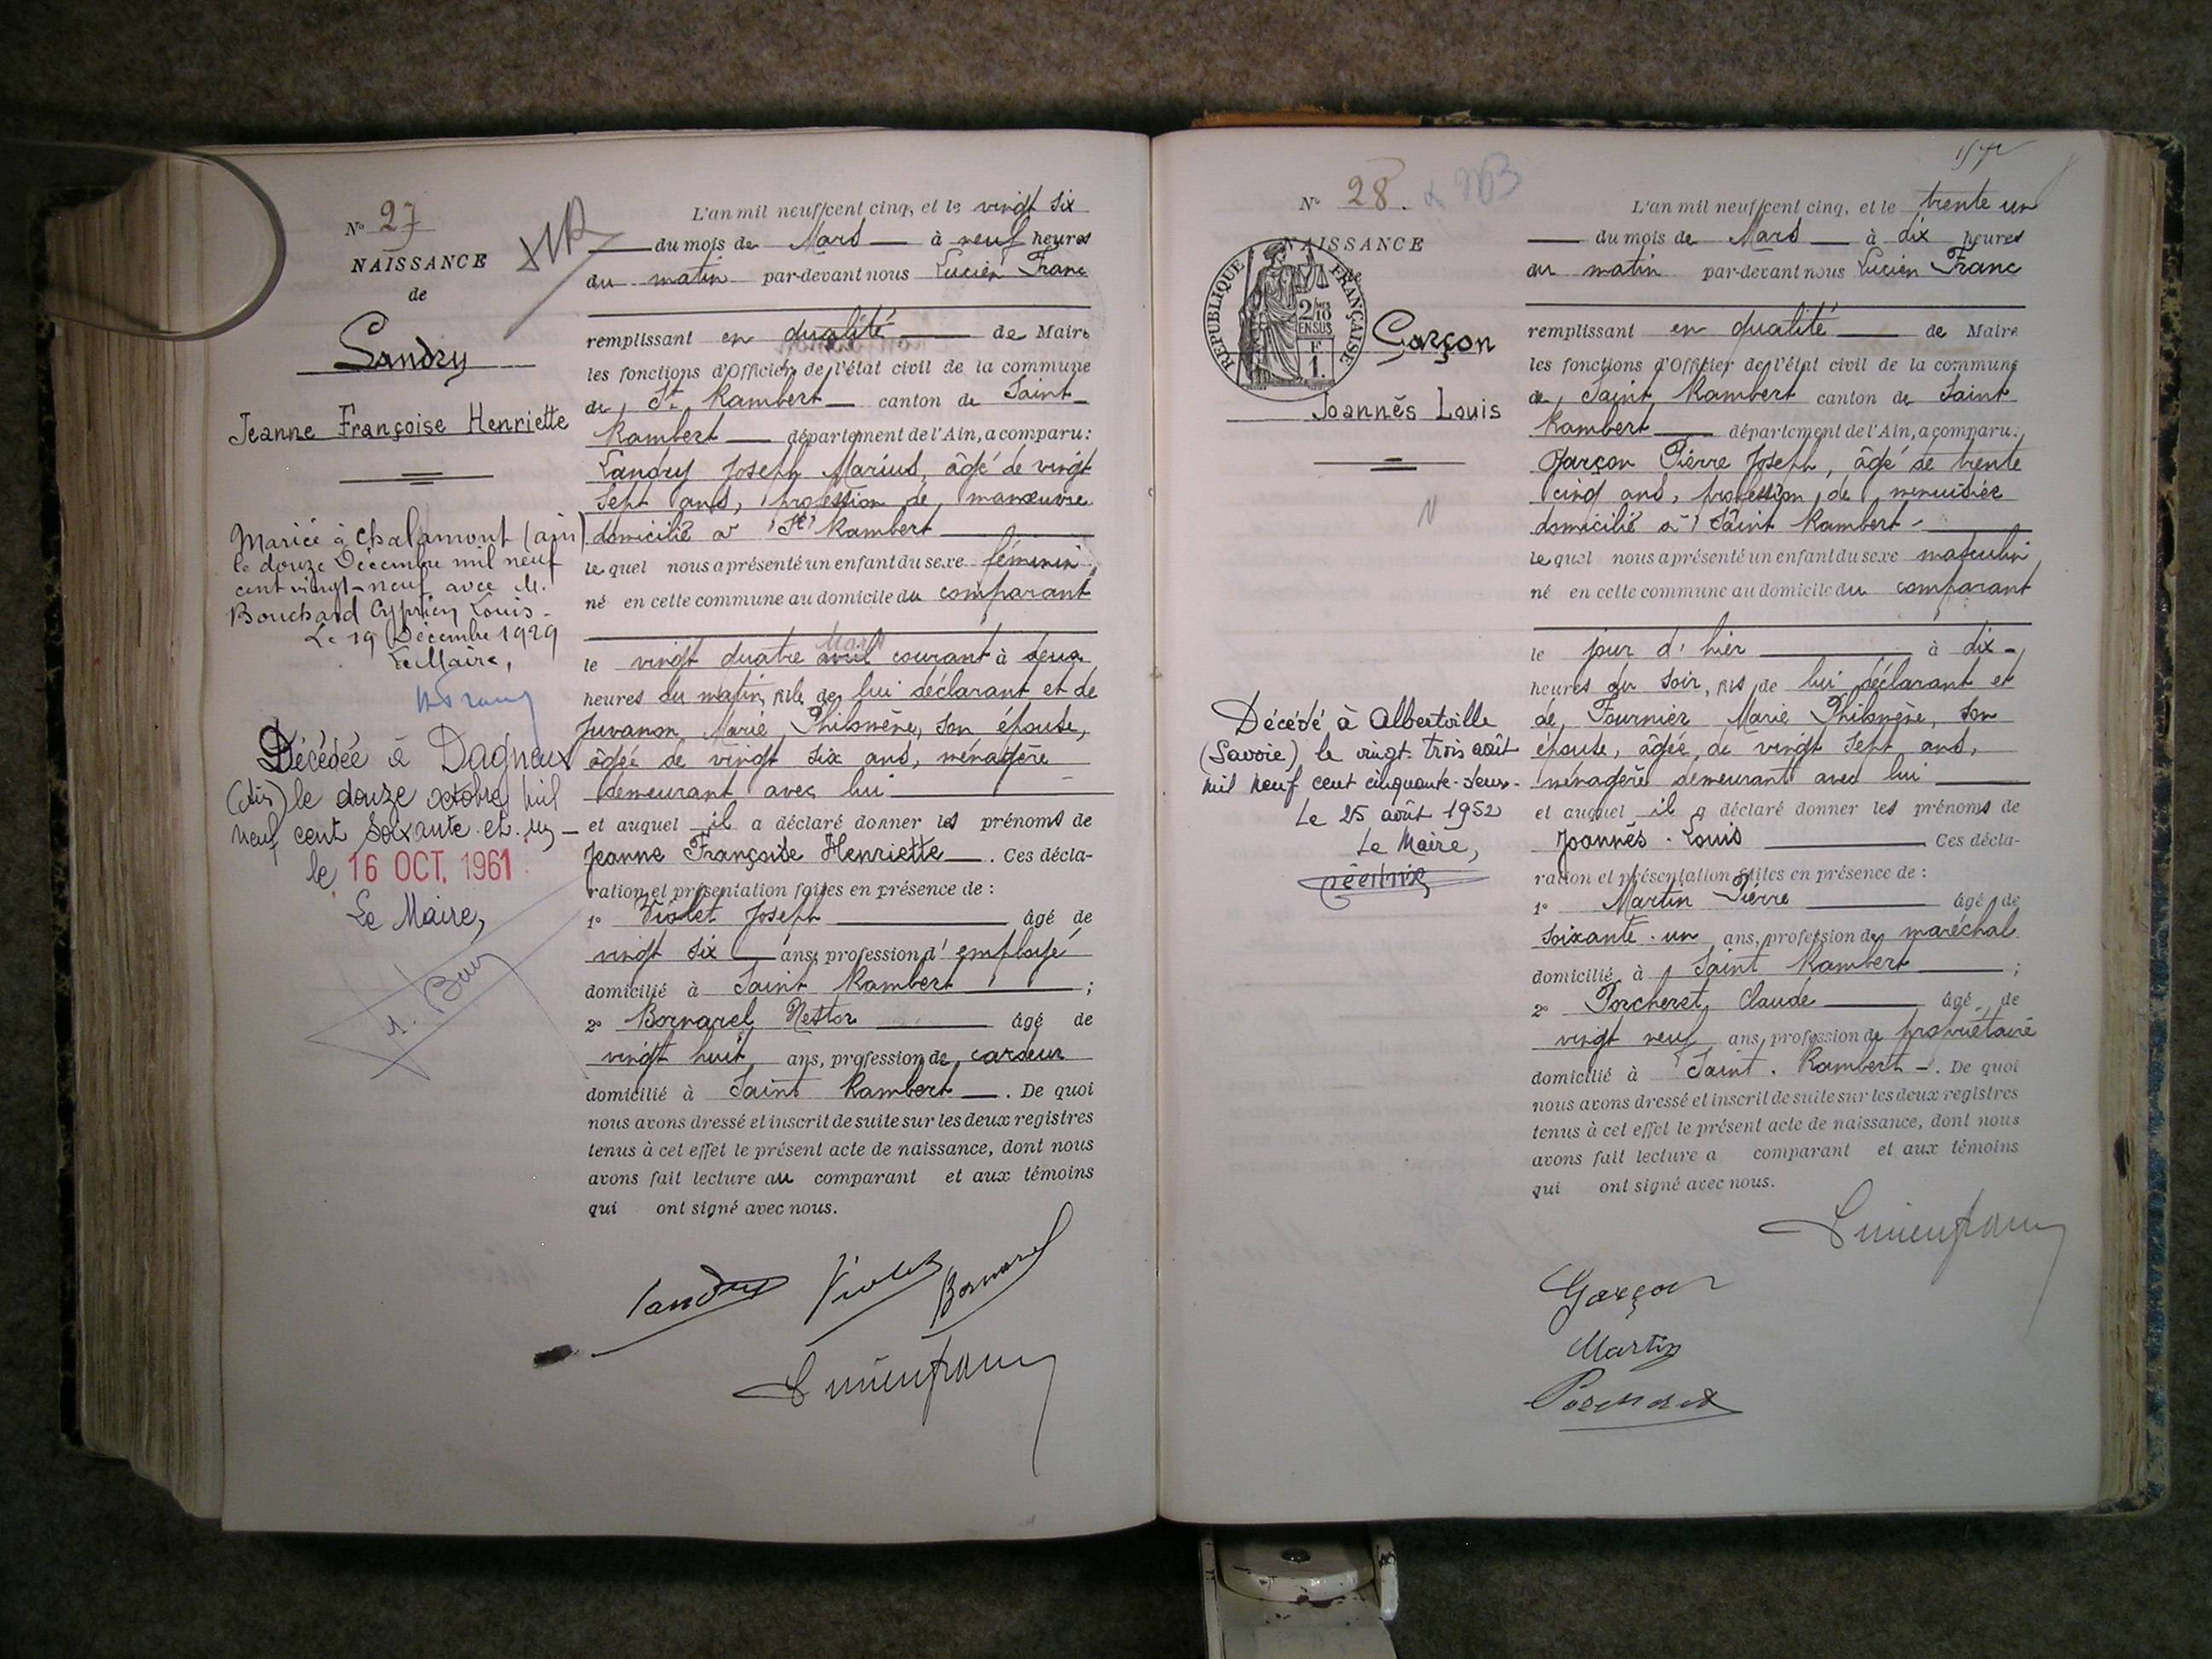 N° 27
NAISSANCE
de
Landry
Jeanne Françoise Henriette
Mariée à Chalamont (ain)
le douze Décembre mil neuf
cent vingt-neuf avec M.
Bouchard Cyprien Louis-
Le 19 Décembre 1929
Le Maire,
Décédée à Dagneux
(Ain) le douze octobre mil
neuf cent soixante et un
le 16 OCT. 1961
Le Maire,
L'an mil neuf cent cinq, et le vingt six
du mois de Mars à neuf heures
du matin par-devant nous Lucien Franc
remplissant en qualité de Maire
les fonctions d'Officier de l'état civil de la commune
de St Rambert canton de Saint
Rambert département de l'Ain, a comparu :
Landry Joseph Marius, âgé de vingt
sept ans, profession de manœuvre
domicilié à St Rambert
lequel nous a présenté un enfant du sexe féminin
né en cette commune au domicile du comparant
Mars
le vingt quatre avril courant à deux
heures du matin, fille de lui déclarant et de
Juvanon Marie Philomène, son épouse,
âgée de vingt six ans, ménagère
demeurant avec lui
et auquel il a déclaré donner les prénoms de
Jeanne Françoise Henriette. Ces décla-
ration et présentation faites en présence de :
1° Violet Joseph âgé de
vingt six ans, profession d'employé
domicilié à Saint Rambert ;
2° Bornarel Nestor âgé de
vingt huit ans, profession de cardeur
domicilié à Saint Rambert. De quoi
nous avons dressé et inscrit de suite sur les deux registres
tenus à cet effet le présent acte de naissance, dont nous
avons fait lecture au comparant et aux témoins
qui ont signé avec nous.
Landry Violet Bornarel
Lucien Franc
N° 28.
NAISSANCE
de
REPUBLIQUE FRANÇAISE
2/10
EN SUS
1 F.
Garçon
Joannès Louis
Décédé à Albertville
(Savoie) le vingt-trois août
mil neuf cent cinquante-deux-
Le 25 août 1952
Le Maire,
L'an mil neuf cent cinq, et le trente un
du mois de Mars à dix heures
du matin par-devant nous Lucien Franc
remplissant en qualité de Maire
les fonctions d'Officier de l'état civil de la commune
de Saint Rambert canton de Saint
Rambert département de l'Ain, a comparu :
Garçon Pierre Joseph, âgé de trente
cinq ans, profession de menuisier
domicilié à Saint Rambert-
lequel nous a présenté un enfant du sexe masculin
né en cette commune au domicile du comparant
le jour d'hier à dix
heures du soir, fils de lui déclarant et
de Fournier Marie Philomène, son
épouse, âgée de vingt sept ans,
ménagère demeurant avec lui
et auquel il a déclaré donner les prénoms de
Joannès-Louis Ces décla-
ration et présentation faites en présence de :
1° Martin Pierre âgé de
soixante-un ans, profession de maréchal
domicilié à Saint Rambert ;
2° Porcheret Claude âgé de
vingt neuf ans, profession de propriétaire
domicilié à Saint-Rambert-. De quoi
nous avons dressé et inscrit de suite sur les deux registres
tenus à cet effet le présent acte de naissance, dont nous
avons fait lecture a comparant et aux témoins
qui ont signé avec nous.
Lucien Franc
Garçon
Martin
Porcheret